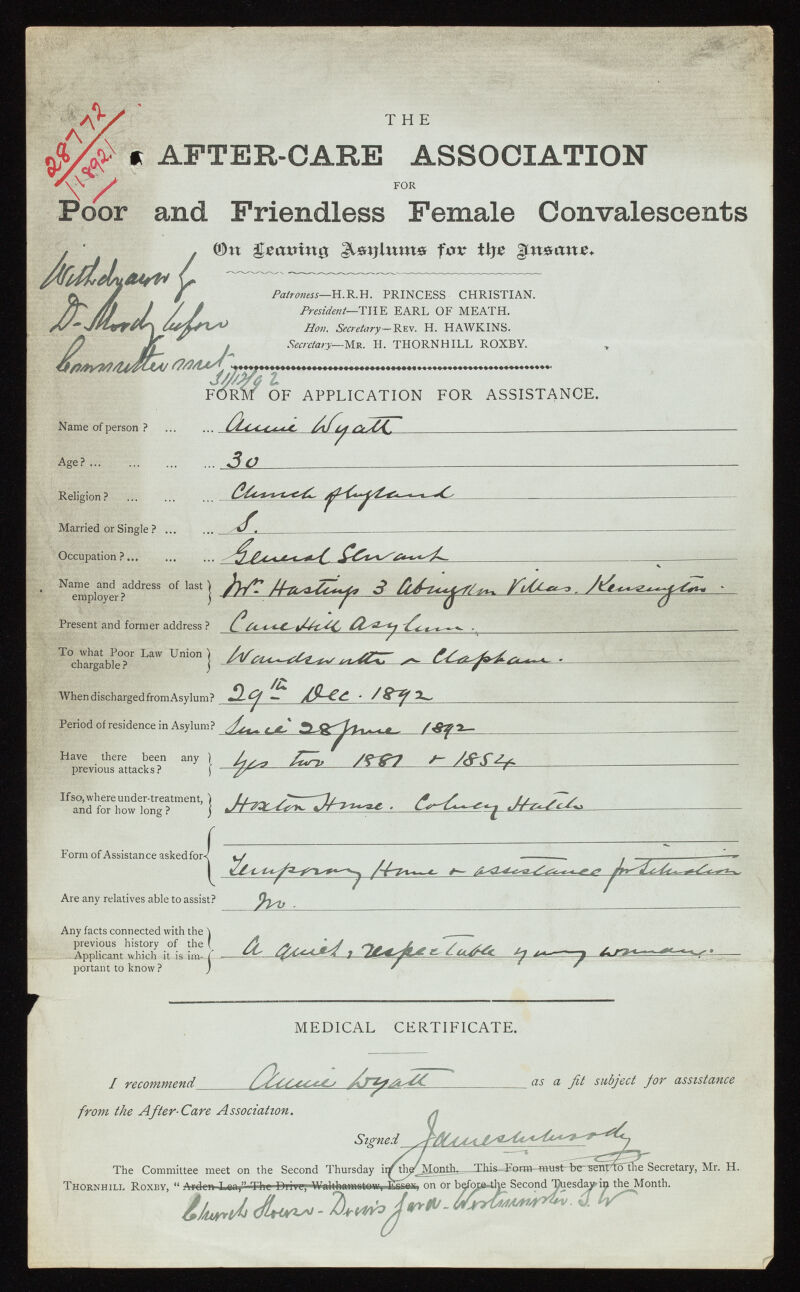 28772
1892
THE
AFTER-CARE ASSOCIATION
FOR
Poor and Friendless Female Convalescents
On Leaving Asylums for the Insane.
Withdrawn by
Dr Moody before
Committee met
31/12/92
Patroness—H.R.H. PRINCESS CHRISTIAN.
President—THE EARL OF MEATH.
Hon. Secretary—REV. H. HAWKINS.
Secretary—MR. H. THORNHILL ROXBY.
FORM OF APPLICATION FOR ASSISTANCE.
Name of person? ... ... Annie Wyatt
Age? ... ... ... ... 30
Religion? ... ... ... Church of England
Married or Single? ... ... S.
Occupation? ... ... ... General Servant
Name and address of last employer? Mr. Hastings 3 Abingdon Villas. Kensington.
Present and former address? Cane Hill Asylum.
To what Poor Law Union chargeable? Wandsworth & Clapham.
When discharged from Asylum? 29th Dec. 1892
Period of residence in Asylum? Since 28 June 1892
Have there been any previous attacks? Yes two 1881 & 1884
If so, where under-treatment, and for how long? Hoxton House. Colney Hatch
Form of Assistance asked for Temporary Home & assistance for Situation
Are any relatives able to assist? No.
Any facts connected with the previous history of the Applicant which it is important to know? A quiet, respectable young woman.
MEDICAL CERTIFICATE.
I recommend Annie Wyatt as a fit subject for assistance
from the After-Care Association.
Signed James M Moody
The Committee meet on the Second Thursday in the Month. This Form must be sent to the Secretary, MR. H.
THORNHILL ROXBY, "Arden Lea," The Drive, Walthamstow, Essex, on or before the Second Tuesday in the Month.
Church House - Dean's Yard - Westminster. S.W